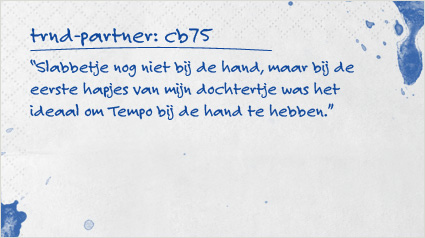 trnd-partner: cb75
"Slabbetje nog niet bij de hand, maar bij de
eerste hapjes van mijn dochtertje was het
ideaal om Tempo bij de hand te hebben."